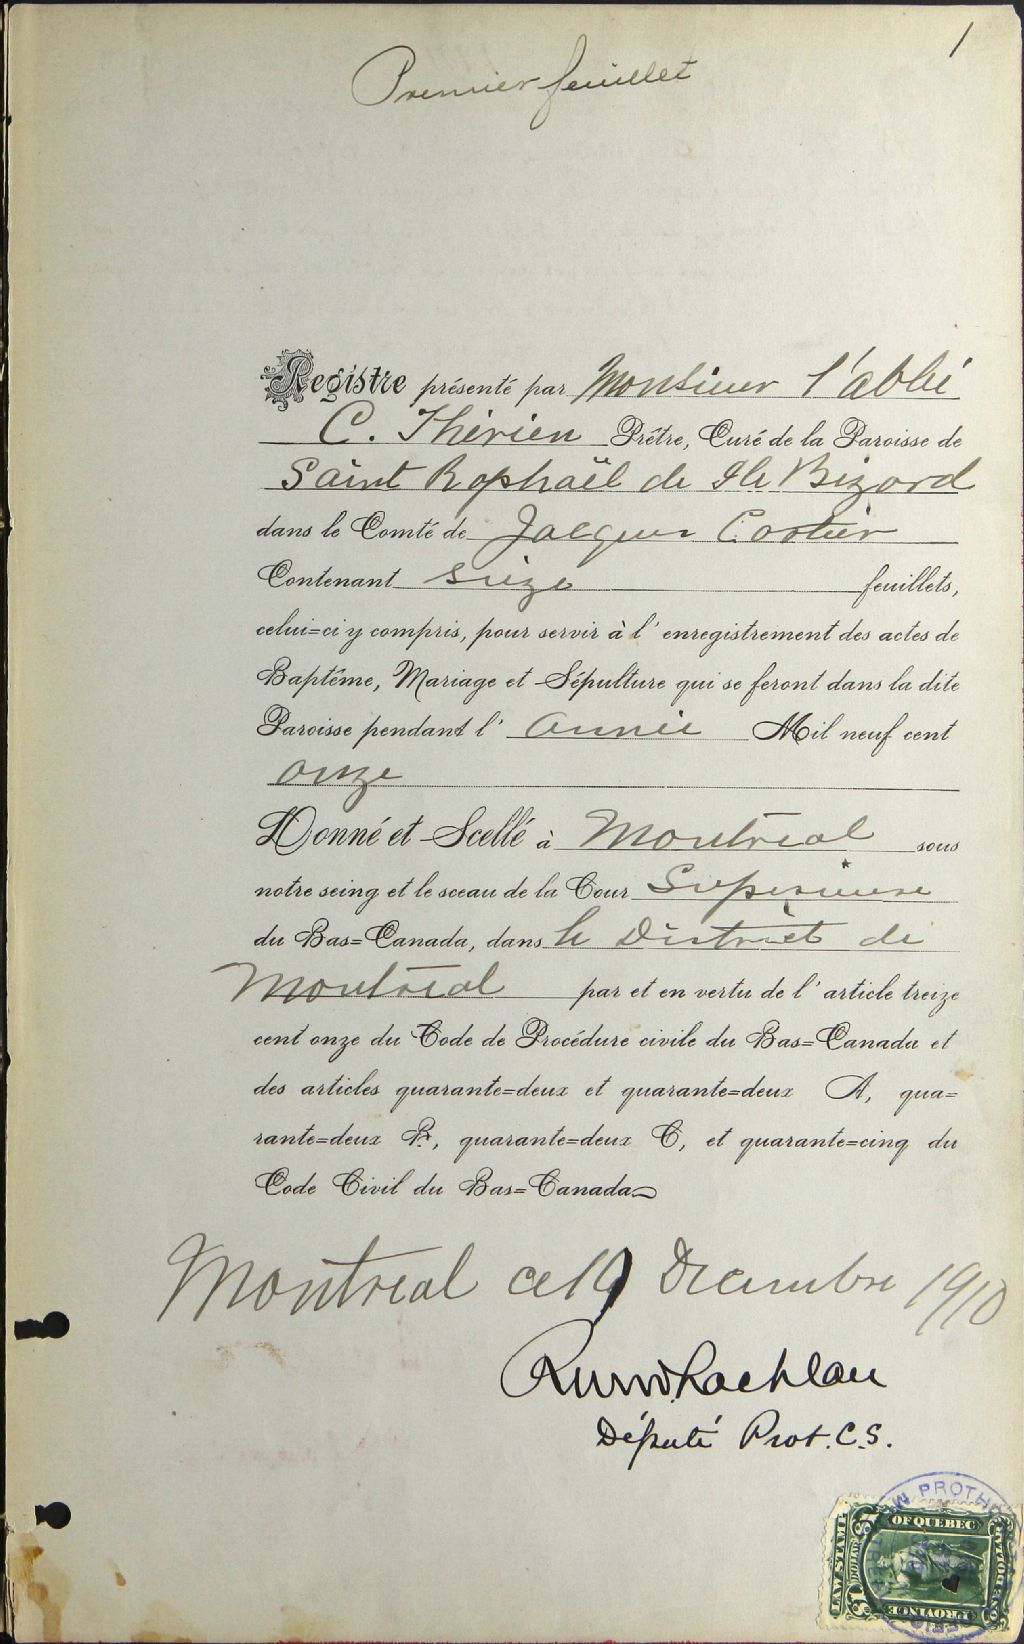 1
Premier feuillet
Registre présenté par Monsieur l'abbé
C. Thérien Prêtre, Curé de la Paroisse de
Saint Raphaël de Ile Bizard
dans le Comté de Jacques Cartier
Contenant seize feuillets,
celui=ci y compris, pour servir à l'enregistrement des actes de
Baptême, Mariage et Sépulture qui se feront dans la dite
Paroisse pendant l'année Mil neuf cent
onze
Donné et Scellé à Montréal sous
notre seing et le sceau de la Cour Supérieure
du Bas=Canada, dans le District de
Montréal par et en vertu de l'article treize
cent onze du Code de Procédure civile du Bas=Canada et
des articles quarante=deux et quarante=deux A, qua=
rante=deux B, quarante=deux C, et quarante=cinq du
Code Civil du Bas=Canada
Montréal ce 19 Décembre 1910
Député Prot. C.S.
PROTHO
OF QUEBEC
LAW STAMP
$1 DOLLAR
PROVINCE